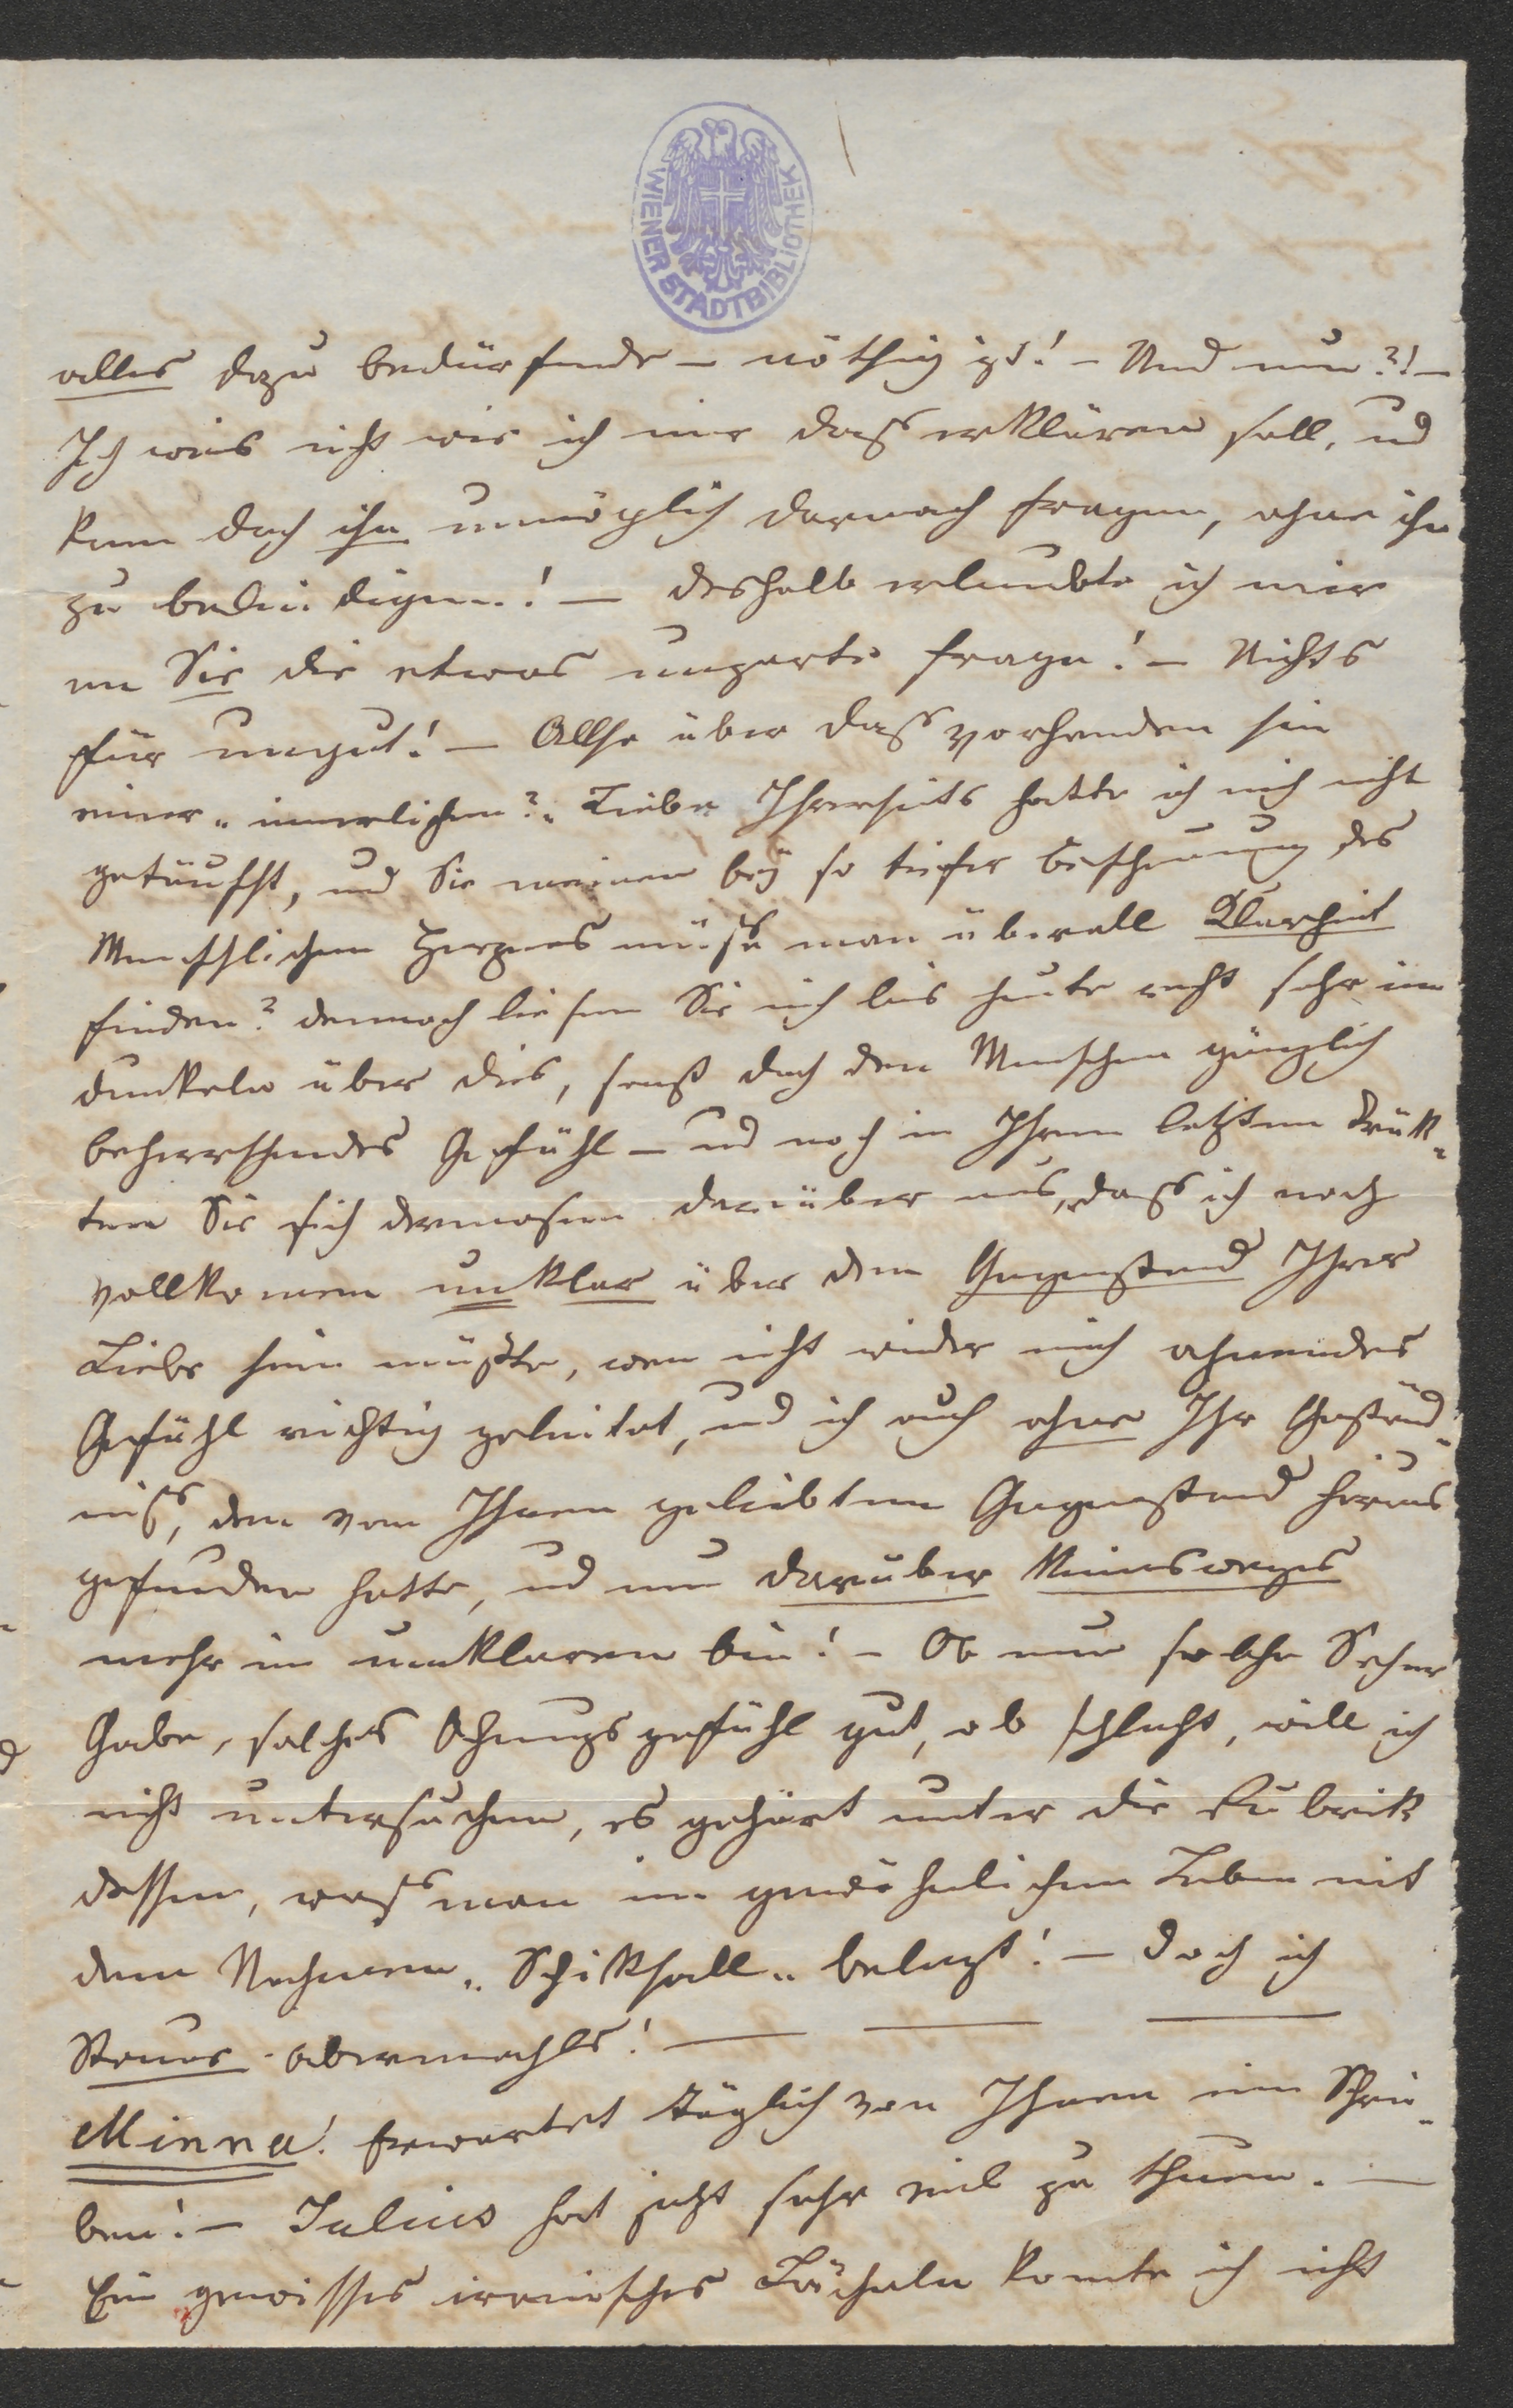 WIENER STADTBIBLIOTHEK
alles dazu bedürfende – nöthig ist! – Und nun?! –
Ich weis nicht wie ich mir daß erklären soll, und
kann doch ihn unmöglich darnach fragen, ohne ihn
zu beleidigen! – deshalb erlaubte ich mir
an Sie die etwas unzarte Frage! – Nichts
für ungut! – Allso über daß vorhanden sein
einer „innerlichen?„ Liebe Ihrerseits hatte ich mich nicht
getäuscht, und Sie meinen bey so tiefer Beschauung des
Menschlichen Herzens müße man überall Klarheit
finden? dennoch liesen Sie mich bis heute recht sehr im
dunkeln über dies, sonst doch den Menschen gänzlich
beherrschendes Gefühl – und noch in Ihrem letzten drük„
ten Sie sich dermasen darüber aus, daß ich noch
vollkomen unklar über den Gegenstand Ihrer
Liebe sein müßte, wen nicht wieder mich ahnendes
Gefühl richtig geleitet, und ich auch ohne Ihr Geständ„
niß, den von Ihnen geliebten Gegenstand heraus
gefunden hätte, und nun darüber keinesweges
mehr im unklaren bin! – Ob nun solche Seher
Gabe, solches Ahnungsgefühl gut, ob schlecht, will ich
nicht untersuchen, es gehört unter die Rubrik
dessen, waß man im gewöhnlichen Leben mit
dem Nahmen „Schiksall„ belegt! – Doch ich
abermahls! –
Minna! Erwartet täglich von Ihnen ein Schrei„
ben! – Julius hat jetzt sehr viel zu thuen. –
Ein gewisses ironisches Lächeln konte ich nicht